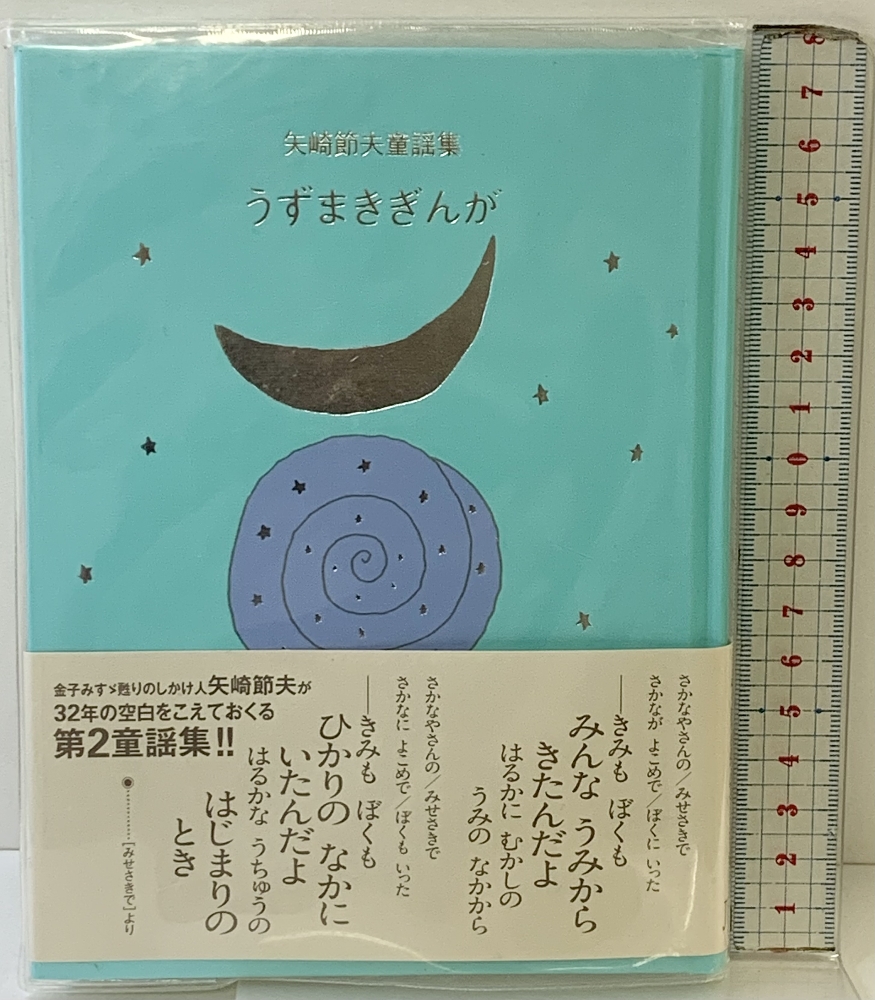 矢崎節夫童謡集
うずまきぎんが
金子みすゞ甦りのしかけ人矢崎節夫が
32年の空白をこえておくる
第2童謡集!!
さかなやさんの/みせさきで
さかなが よこめで/ぼくに いった
──きみも ぼくも
みんな うみから
きたんだよ
はるかに むかしの
うみの なかから
さかなやさんの/みせさきで
さかなに よこめで/ぼくも いった
──きみも ぼくも
ひかりの なかに
いたんだよ
はるかな うちゅうの
はじまりの
とき
[みせさきで]より
8
7
6
5
4
3
2
1
0
9
8
7
6
5
4
3
2
1